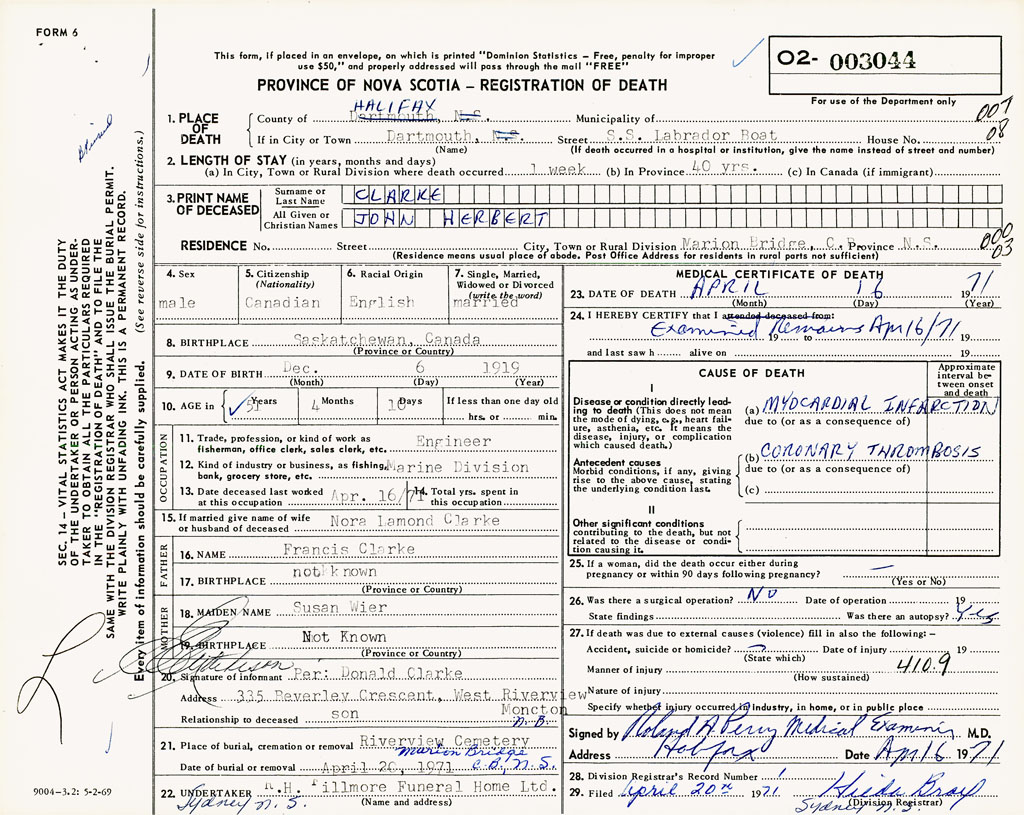 FORM 6
This form, if placed in an envelope, on which is printed "Dominion Statistics – Free, penalty for improper
use $50," and properly addressed will pass through the mail "FREE"
PROVINCE OF NOVA SCOTIA – REGISTRATION OF DEATH
02- 003044
For use of the Department only
SEC. 14 – VITAL STATISTICS ACT MAKES IT THE DUTY
OF THE UNDERTAKER OR PERSON ACTING AS UNDER-
TAKER TO OBTAIN ALL THE PARTICULARS REQUIRED
IN THE "REGISTRATION OF DEATH" AND TO FILE THE
SAME WITH THE DIVISION REGISTRAR WHO SHALL ISSUE THE BURIAL PERMIT.
WRITE PLAINLY WITH UNFADING INK. THIS IS A PERMANENT RECORD.
Every item of information should be carefully supplied. (See reverse side for instructions.)
1. PLACE OF DEATH
HALIFAX
County of Dartmouth, N.S. Municipality of 007
If in City or Town Dartmouth, N.S. Street S.S. Labrador Boat House No. 08
(Name) (If death occurred in a hospital or institution, give the name instead of street and number)
2. LENGTH OF STAY (in years, months and days)
(a) In City, Town or Rural Division where death occurred 1 week (b) In Province 40 yrs. (c) In Canada (if immigrant)
3. PRINT NAME OF DECEASED
Surname or Last Name CLARKE
All Given or Christian Names JOHN HERBERT
RESIDENCE No. Street City, Town or Rural Division Marion Bridge, C.B. Province N.S. 000 03
(Residence means usual place of abode. Post Office Address for residents in rural parts not sufficient)
4. Sex
male
5. Citizenship
(Nationality)
Canadian
6. Racial Origin
English
7. Single, Married,
Widowed or Divorced
(write the word)
married
8. BIRTHPLACE Saskatchewan, Canada
(Province or Country)
9. DATE OF BIRTH Dec. 6 1919
(Month) (Day) (Year)
10. AGE in 51 Years 4 Months 10 Days If less than one day old
hrs. or min.
OCCUPATION
11. Trade, profession, or kind of work as
fisherman, office clerk, sales clerk, etc. Engineer
12. Kind of industry or business, as fishing,
bank, grocery store, etc. Marine Division
13. Date deceased last worked
at this occupation Apr. 16/71
14. Total yrs. spent in
this occupation
15. If married give name of wife
or husband of deceased Nora Lamond Clarke
FATHER
16. NAME Francis Clarke
17. BIRTHPLACE not known
(Province or Country)
MOTHER
18. MAIDEN NAME Susan Wier
19. BIRTHPLACE Not Known
(Province or Country)
20. Signature of informant Per: Donald Clarke
Address 335 Beverley Crescent, West Riverview
Moncton
Relationship to deceased son N.B.
21. Place of burial, cremation or removal Riverview Cemetery
Marion Bridge
Date of burial or removal April 20, 1971 C.B., N.S.
22. UNDERTAKER R.H. Fillmore Funeral Home Ltd.
Sydney N.S. (Name and address)
9004-3.2: 5-2-69
MEDICAL CERTIFICATE OF DEATH
23. DATE OF DEATH APRIL 16 1971
(Month) (Day) (Year)
24. I HEREBY CERTIFY that I attended deceased from:
Examined Remains Apr 16/71
19 to 19
and last saw h alive on 19
CAUSE OF DEATH
Approximate
interval be-
tween onset
and death
I
Disease or condition directly lead-
ing to death (This does not mean
the mode of dying, e.g., heart fail-
ure, asthenia, etc. It means the
disease, injury, or complication
which caused death.)
(a) MYOCARDIAL INFARCTION
due to (or as a consequence of)
Antecedent causes
Morbid conditions, if any, giving
rise to the above cause, stating
the underlying condition last.
(b) CORONARY THROMBOSIS
due to (or as a consequence of)
(c)
II
Other significant conditions
contributing to the death, but not
related to the disease or condi-
tion causing it.
25. If a woman, did the death occur either during
pregnancy or within 90 days following pregnancy? —
(Yes or No)
26. Was there a surgical operation? NO Date of operation 19
State findings Was there an autopsy? Yes
27. If death was due to external causes (violence) fill in also the following: –
Accident, suicide or homicide? — Date of injury 19
(State which)
Manner of injury 410.9
(How sustained)
Nature of injury
Specify whether injury occurred in industry, in home, or in public place
Signed by Roland A Perry Medical Examiner M.D.
Address Halifax Date Apr 16 1971
28. Division Registrar's Record Number 1
29. Filed April 20th 1971 Hilda Bray
Sydney N.S. (Division Registrar)